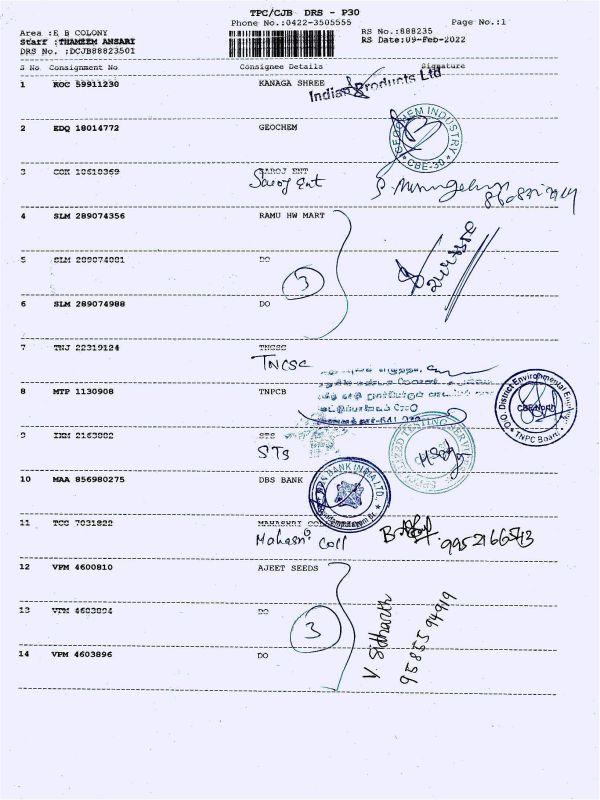 TPC/CJB DRS - P30
Phone No.:0422-3505555
Page No.:1
Area :E B COLONY
Staff :THAMEEM ANSARI
DRS No. :DCJB88823501
RS No.:888235
RS Date:09-Feb-2022
S No Consignment No Consignee Details Signature
1 KOC 59911230 KANAGA SHREE
Indian Products Ltd
2 EDQ 18014772 GEOCHEM
GEOCHEM INDUSTRY
* CBE-30 *
3 CGK 10610369 SAROJ ENT
Saroj Ent
4 SLM 289074356 RAMU HW MART
5 SLM 289074881 DO
3
6 SLM 289074988 DO
7 TNJ 22319124 TNCSC
TNCSC
8 MTP 1130908 TNPCB
O/O. District Environmental Engineer
CBE North
* TNPC Board *
9 IXM 2163882 STS
STS
TESTING SERVICES
10 MAA 856980275 DBS BANK
DBS BANK INDIA LTD.
11 TCG 7031822 MAHASHRI COLL
Mahasri Coll
9952166543
12 VPM 4600810 AJEET SEEDS
13 VPM 4603894 DO
3
V. Sidharth
95855 94919
14 VPM 4603896 DO